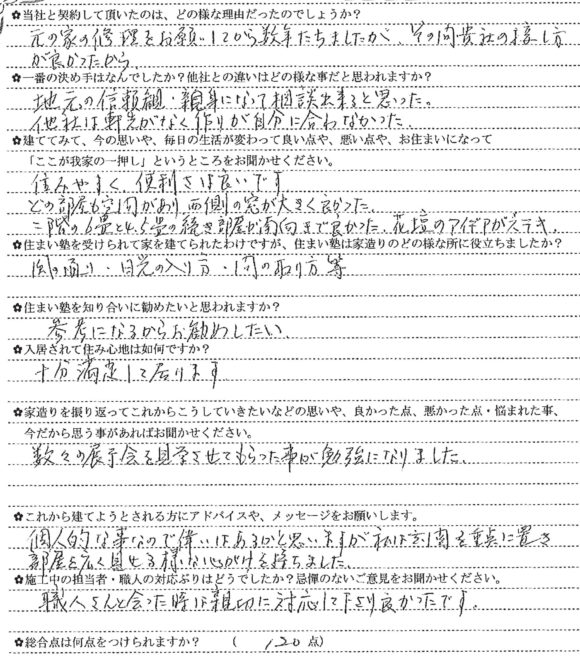 ✿当社と契約して頂いたのは、どの様な理由だったのでしょうか？
元の家の修理をお願いしてから数年たちましたが、その間貴社の接し方
が良かったから
✿一番の決め手はなんでしたか？他社との違いはどの様な事だと思われますか？
地元の信頼組・親身になって相談出来ると思った。
他社は軒先がなく作りが自分に合わなかった
✿建ててみて、今の思いや、毎日の生活が変わって良い点や、悪い点や、お住まいになって
「ここが我家の一押し」というところをお聞かせください。
住みやすく、便利さは良いです
どの部屋も空間があり西側の窓が大きく良かった
二階の6畳と4.5畳の続き部屋が南向きで良かった、花壇のアイデアがステキ。
✿住まい塾を受けられて家を建てられたわけですが、住まい塾は家造りのどの様な所に役立ちましたか？
風の通り・日光の入り方・間の取り方等
✿住まい塾を知り合いに勧めたいと思われますか？
参考になるからお勧めしたい、
✿入居されて住み心地は如何ですか？
十分満足して居ります
✿家造りを振り返ってこれからこうしていきたいなどの思いや、良かった点、悪かった点・悩まれた事、
今だから思う事があればお聞かせください。
数々の展示会を見学させてもらった事が勉強になりました。
✿これから建てようとされる方にアドバイスや、メッセージをお願いします。
個人的な事なので違いはあるかと思いますが私は空間を重点に置き
部屋を広く見せる様な心がけを持ちました。
✿施工中の担当者・職人の対応ぶりはどうでしたか？忌憚のないご意見をお聞かせください。
職人さんと会った時は親切に対応して下さり良かったです。
✿総合点は何点をつけられますか？　（　120 点）